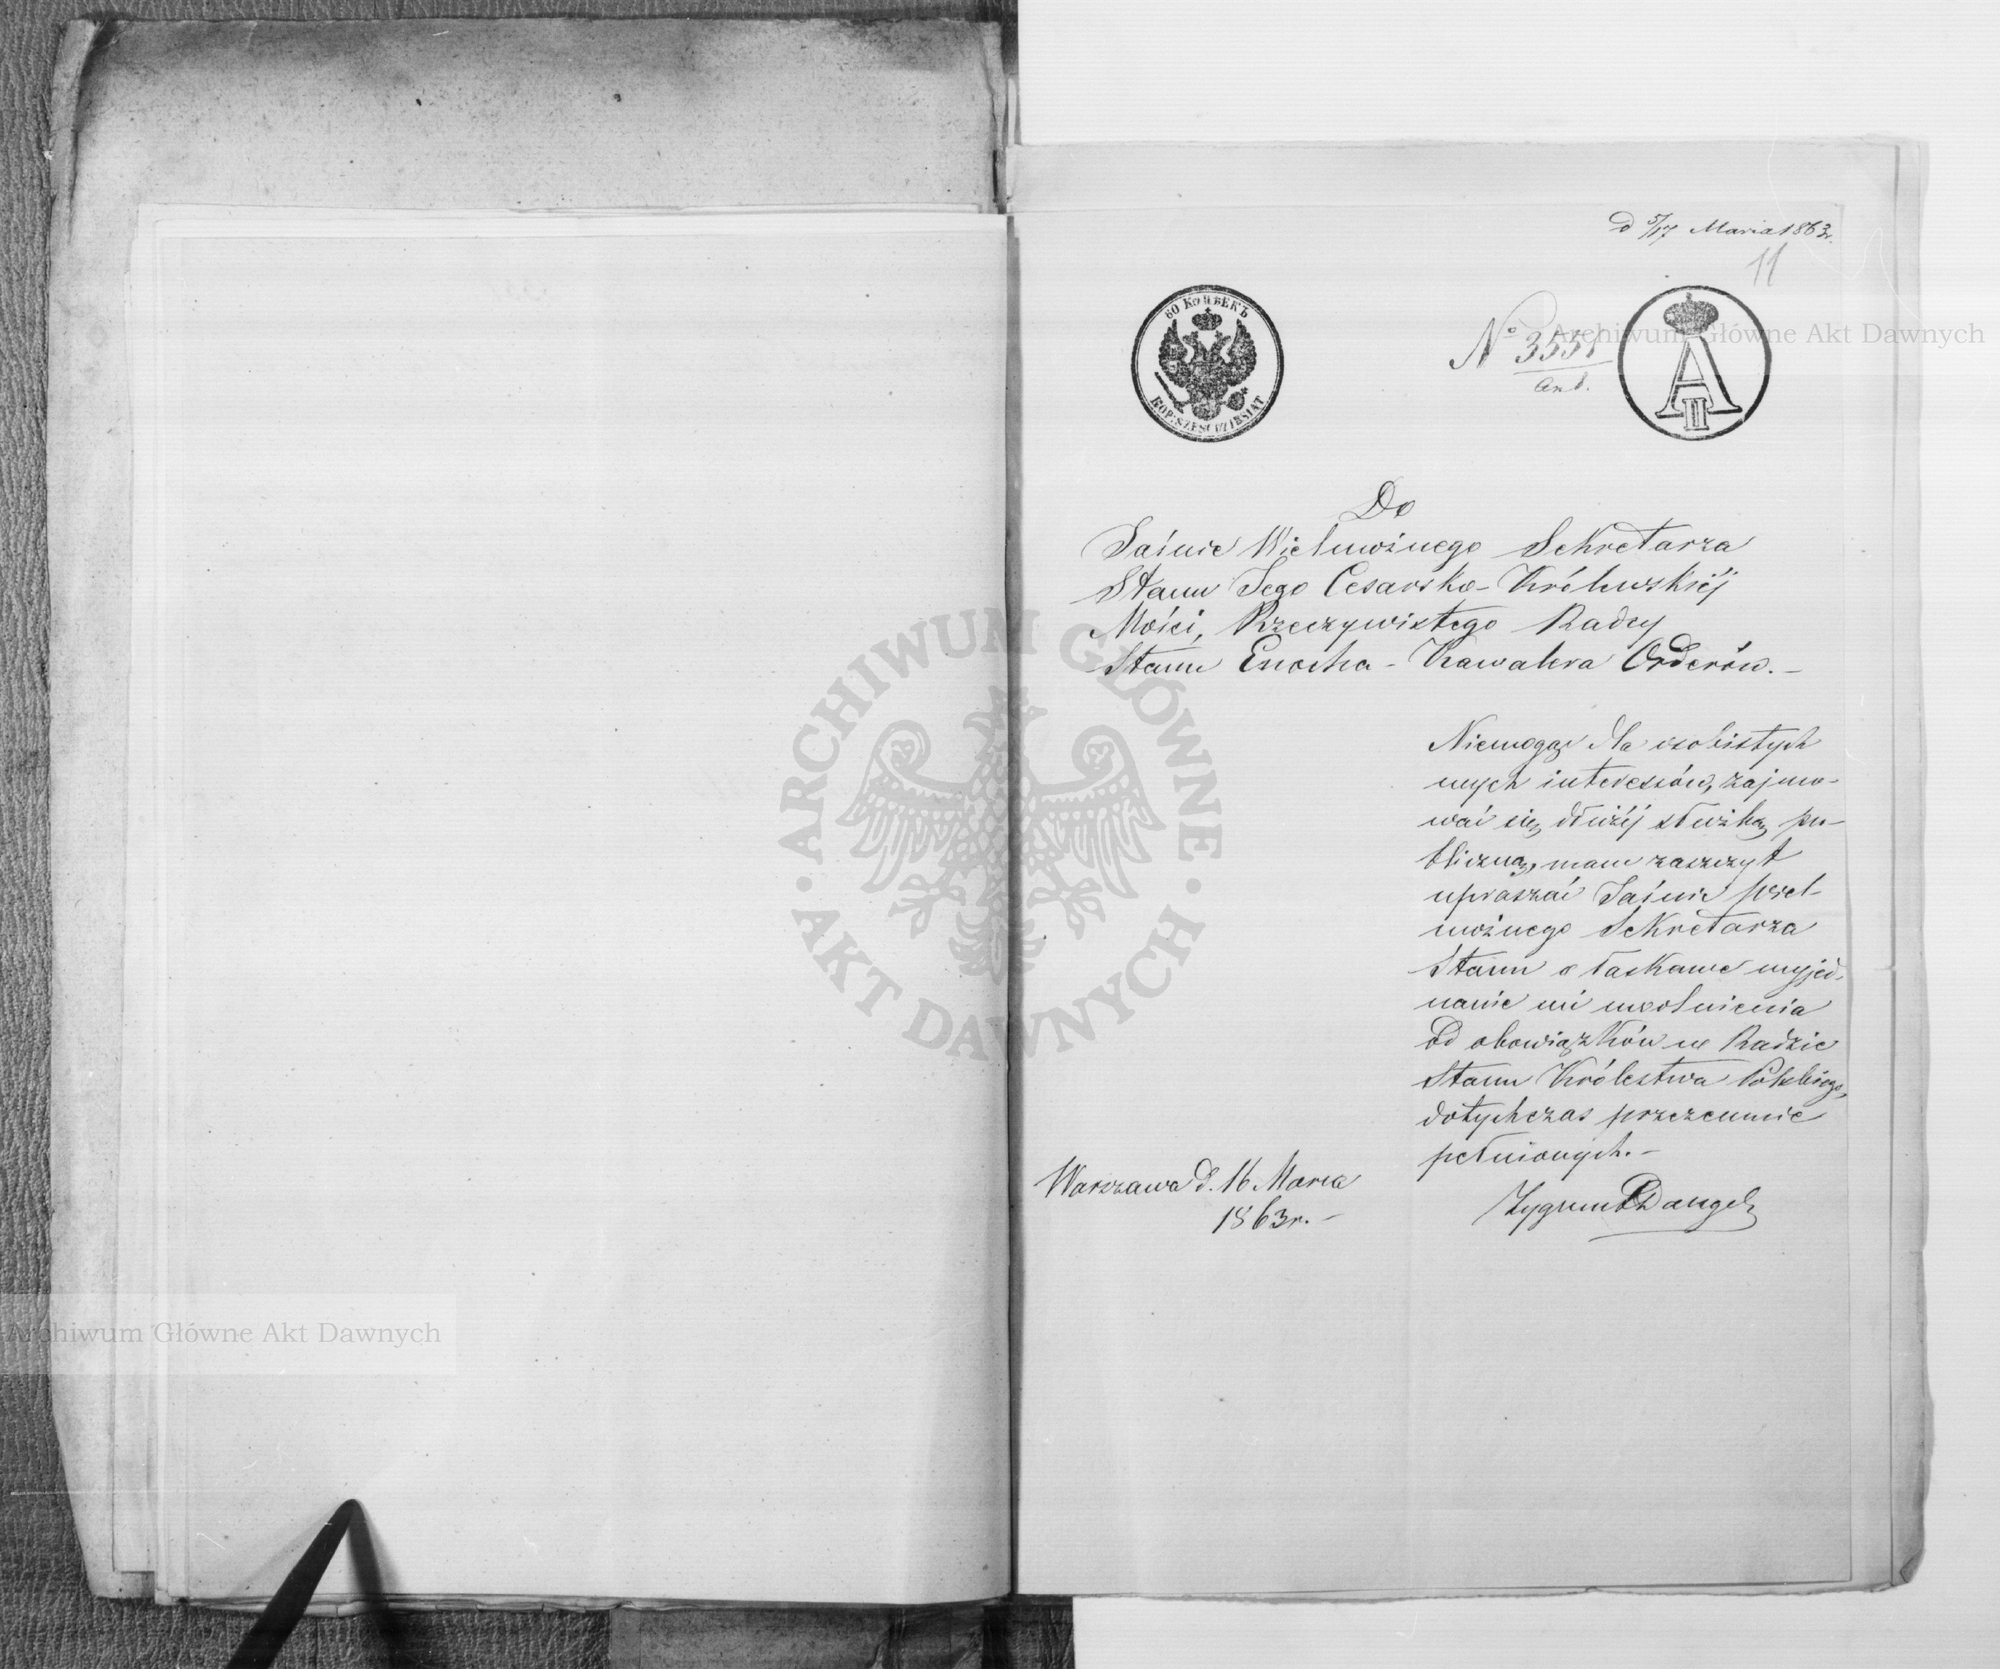 d 5/17 Marca 1863r.
11
60 КОПѢЕКЪ
KOP: SZEŚĆDZIESIĄT
Nº 3551
A
II
Do
Jaśnie Wielmożnego Sekretarza
Stanu Jego Cesarsko-Królewskiéj
Mości, Rzeczywistego Radcy
Stanu Enocha - Kawalera Orderów. -
Niemogąc dla osobistych
mych interessów, zajmo-
wać się dłużéj służbą pu-
bliczną, mam zaszczyt
upraszać Jaśnie Wiel-
możnego Sekretarza
Stanu o łaskawe wyjed-
nanie mi uwolnienia
od obowiązków w Radzie
Stanu Królestwa Polskiego,
dotychczas przezemnie
pełnionych. -
Warszawa d. 16 Marca
1863r. -
Zygmunt Dangel
ARCHIWUM GŁÓWNE
AKT DAWNYCH
Archiwum Główne Akt Dawnych
Archiwum Główne Akt Dawnych